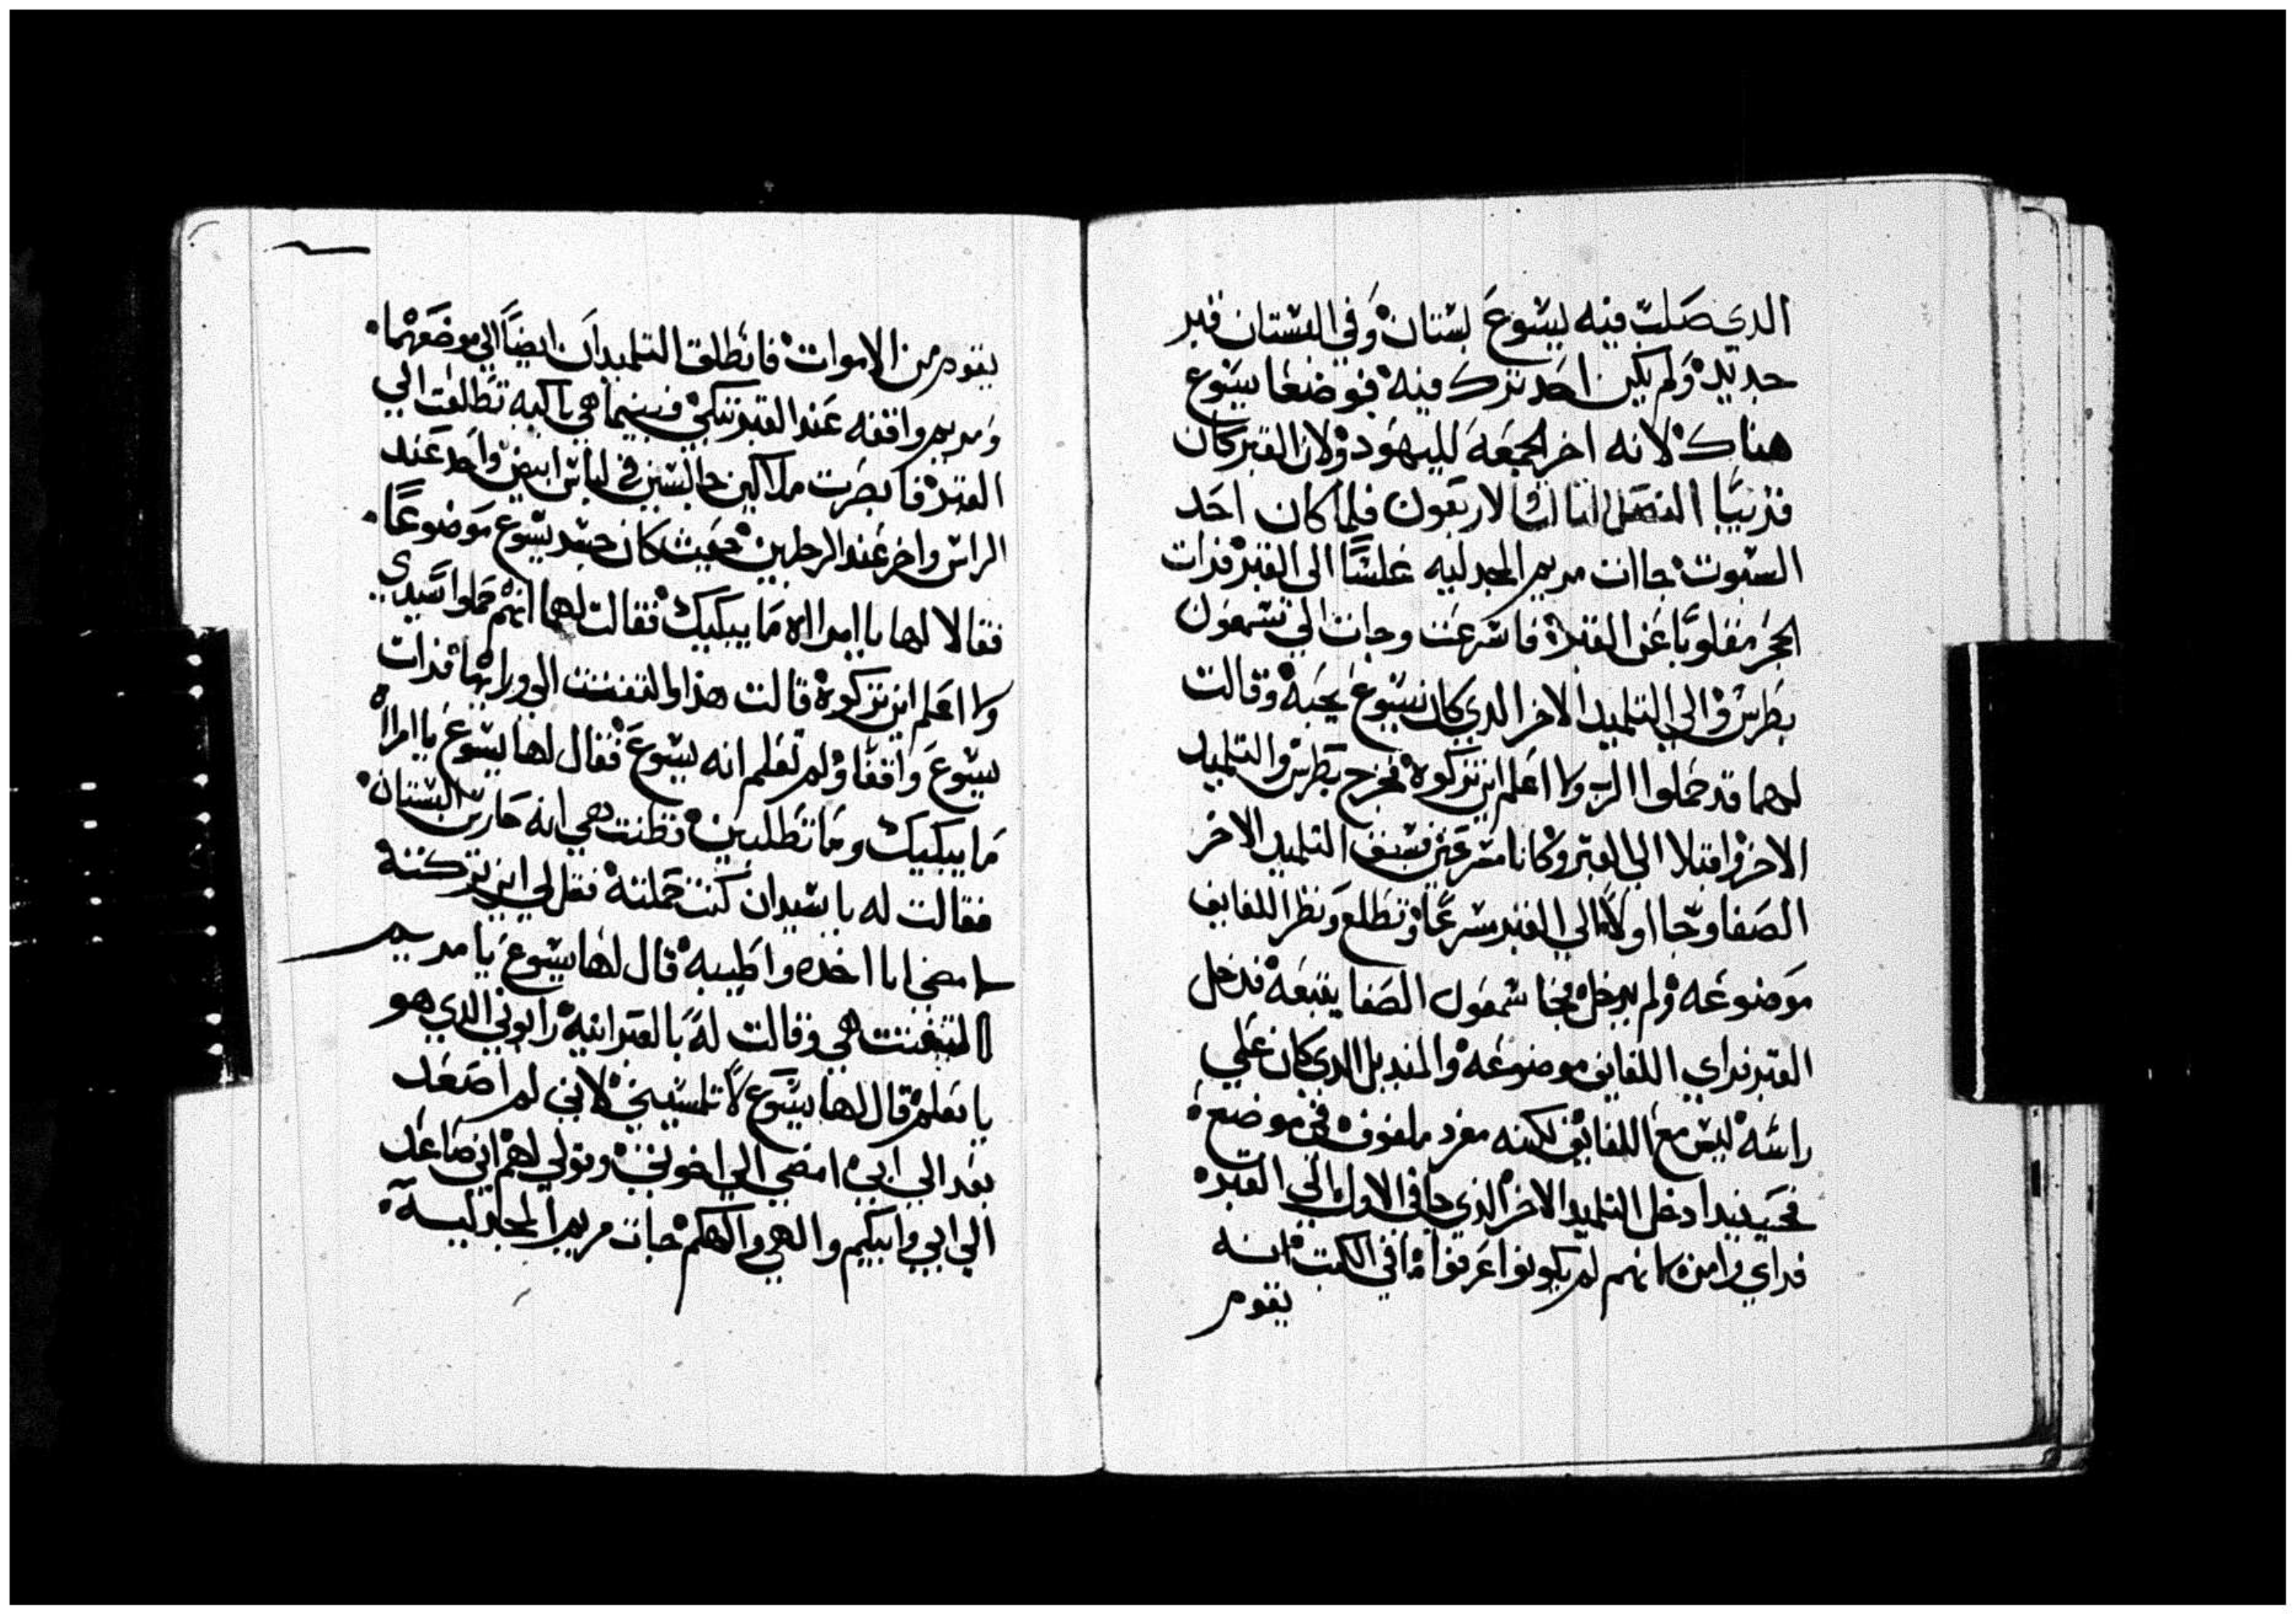 الدي صَلبَ فيه يسُوعَ بستان وَفي البستان قبر
جديد وَلم يكن احَد ترك فيه فوضعَا يسَوع
هناك لانه اخر الجمعَة لليهود ولان القبر كان
قريبًا الفصَل الثالث لاربعون فلما كان احَد
السبوت جاات مريم المجدليه غلسًا الى القبر فرات
الحجَر مقلوبًا عَن القبر فاسَرعَت وجات الي شمعَون
بطرس والي التلميد الاخر الدي كان يسَوعَ يحَبه وقالت
لهما قد حَملوا الرب ولا اعَلم اين تركوه فخرج بطَرس والتلميد
الاخر واقبلا الي القبر وكانا مسَرعَين فسَبق التلميد الاخر
الصَفا وجَا اولاً الي القبر سرعًا وتطلع وَنظر اللفايف
مَوضوعَه ولم يدخل فجا شمعَون الصَفا يتبعَه فدخل
القبر فراي اللفايف موضوعَه والمنديل الدي كان عَلي
راسَه ليسَ معَ اللفايف لكنه مفرد ملفوف في موضع
فحَينيدا دخل التلميد الاخر الذي جا في الاول الي القبر
فراي وامن لانهم لم يكونوا عَرفوا ما في الكتب انه
يقوم
يقوم من الاموات فانطلق التلميدان ايضًا الي موضعَهما
وَمريم واقفه عَند القبر تبكي فبينما هي باكيه تطلعَت الي
القبر فابصَرت ملاكين جالسَين في لباس ابيض واحَد عَند
الراس واخر عَند الرجلين حَيث كان جسَد يسَوع مَوضوعًا
فقالا لها يا امراه مَا يبكيك فقالت لهما انهم حَملوا سَيدي
ولا اعَلم اين تركوه قالت هذا والتفتت الي ورايها فرات
يسَوعَ واقفًا ولم تعَلم انه يسَوعَ فقال لها يسَوعَ يا امراه
مَا يبكيك وَمَا تطلبين فظنت هي انه حَارس البسَتان
فقالت له يا سَيد ان كنت حَملته فقل لي اين تركته
لامضي انا اخده واطَيبه قال لها يسَوعَ يا مريم
التفتت هي وقالت لهَ بالعَبرانيه رابوني الدي هو
يا معَلم قال لها يسَوع لا تلمسَيني لاني لم اصَعَد
بعَد الي ابي امضي الي اخوتي وقولي لهم اني صَاعَد
الي ابي وابيكم والهي والهكم جات مريم المجدليه